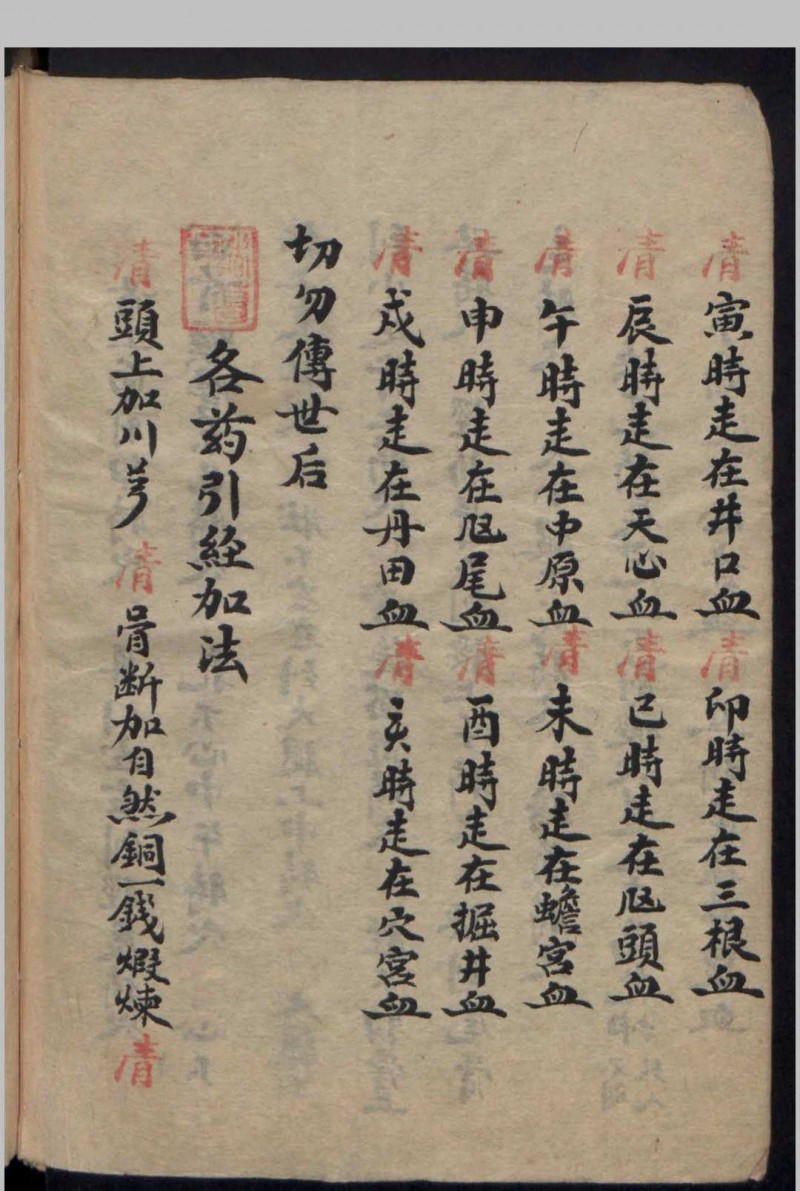 清 寅時走在井口血 清 卯時走在三根血
清 辰時走在天心血 清 巳時走在凤頭血
清 午時走在中原血 清 未時走在蟾宮血
清 申時走在凤尾血 清 酉時走在掘井血
清 戍時走在丹田血 清 亥時走在穴宮血
切勿傳世后
各药引經加法
清 頭上加川芎 清 骨断加自然銅一錢煅煉 清